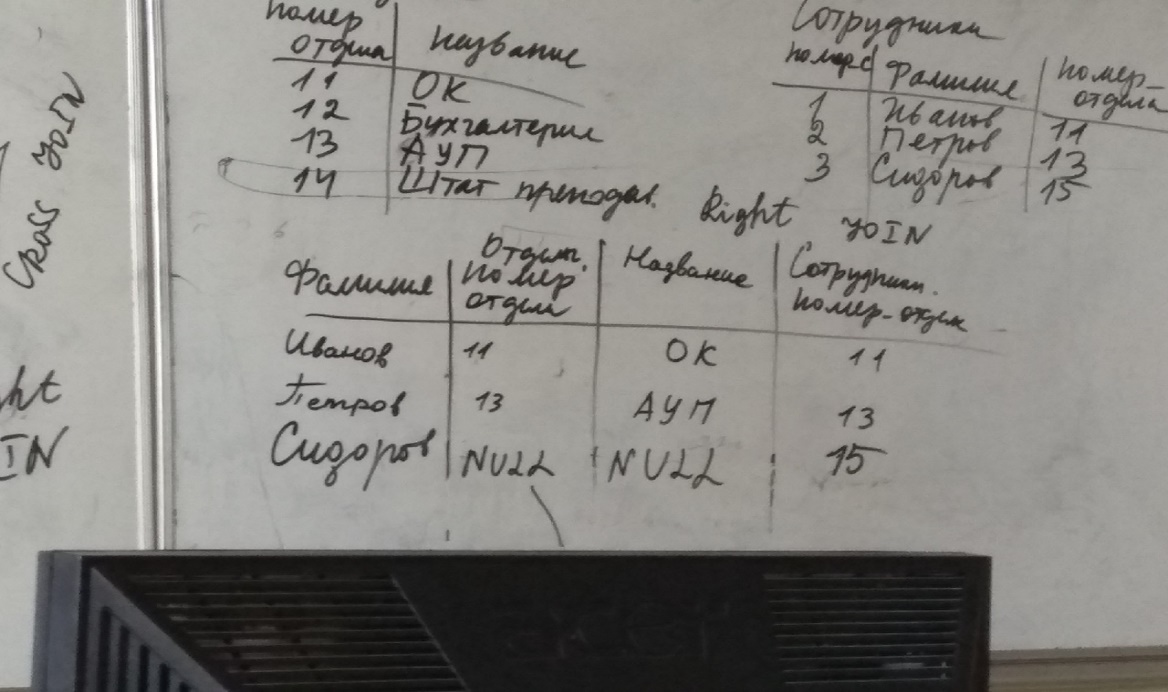 номер
отдела | Название
11 | ОК
12 | Бухгалтерия
13 | АУП
14 | Штат преподав.
Сотрудники
номерс | Фамилия | номер_
отдела
1 | Иванов | 11
2 | Петров | 13
3 | Сидоров | 15
Right JOIN
Фамилия | Отделы.
номер
отдела | Название | Сотрудники.
номер_отдела
Иванов | 11 | ОК | 11
Петров | 13 | АУП | 13
Сидоров | NULL | NULL | 15
CRoss JOIN
ht
IN
acer